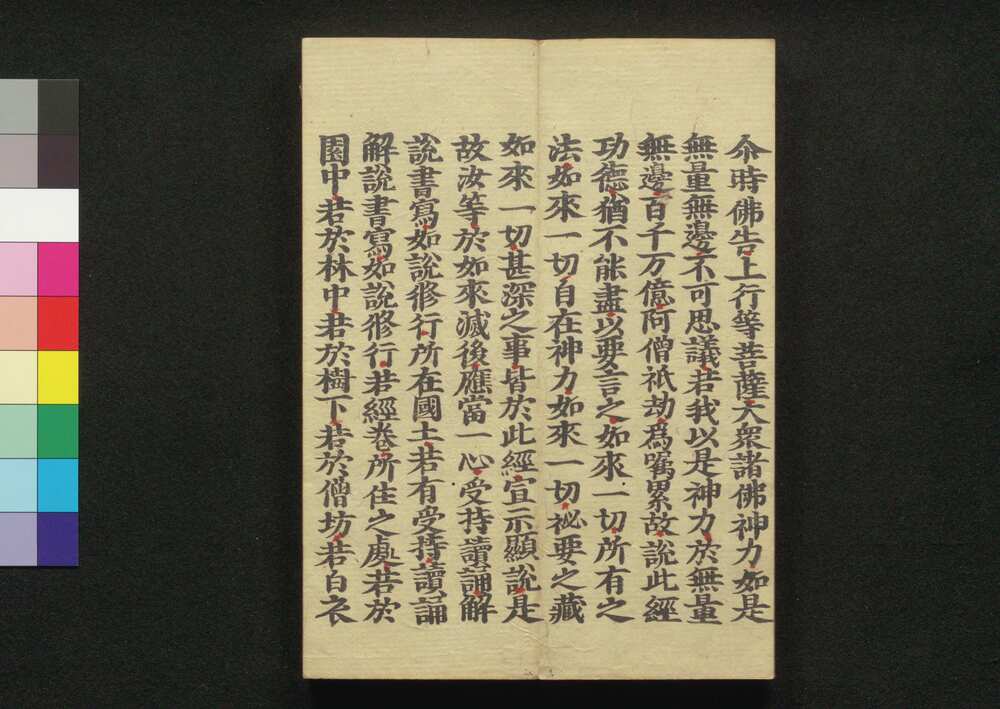 尒時佛告上行等菩薩大衆諸佛神力如是
無量無邊不可思議若我以是神力於無量
無邊百千万億阿僧祇劫爲嘱累故説此經
功德猶不能盡以要言之如來一切所有之
法如來一切自在神力如來一切祕要之藏
如來一切甚深之事皆於此經宣示顯説是
故汝等於如來滅後應當一心受持讀誦解
説書寫如説修行所在國土若有受持讀誦
解説書寫如説修行若經卷所住之處若於
園中若於林中若於樹下若於僧坊若白衣